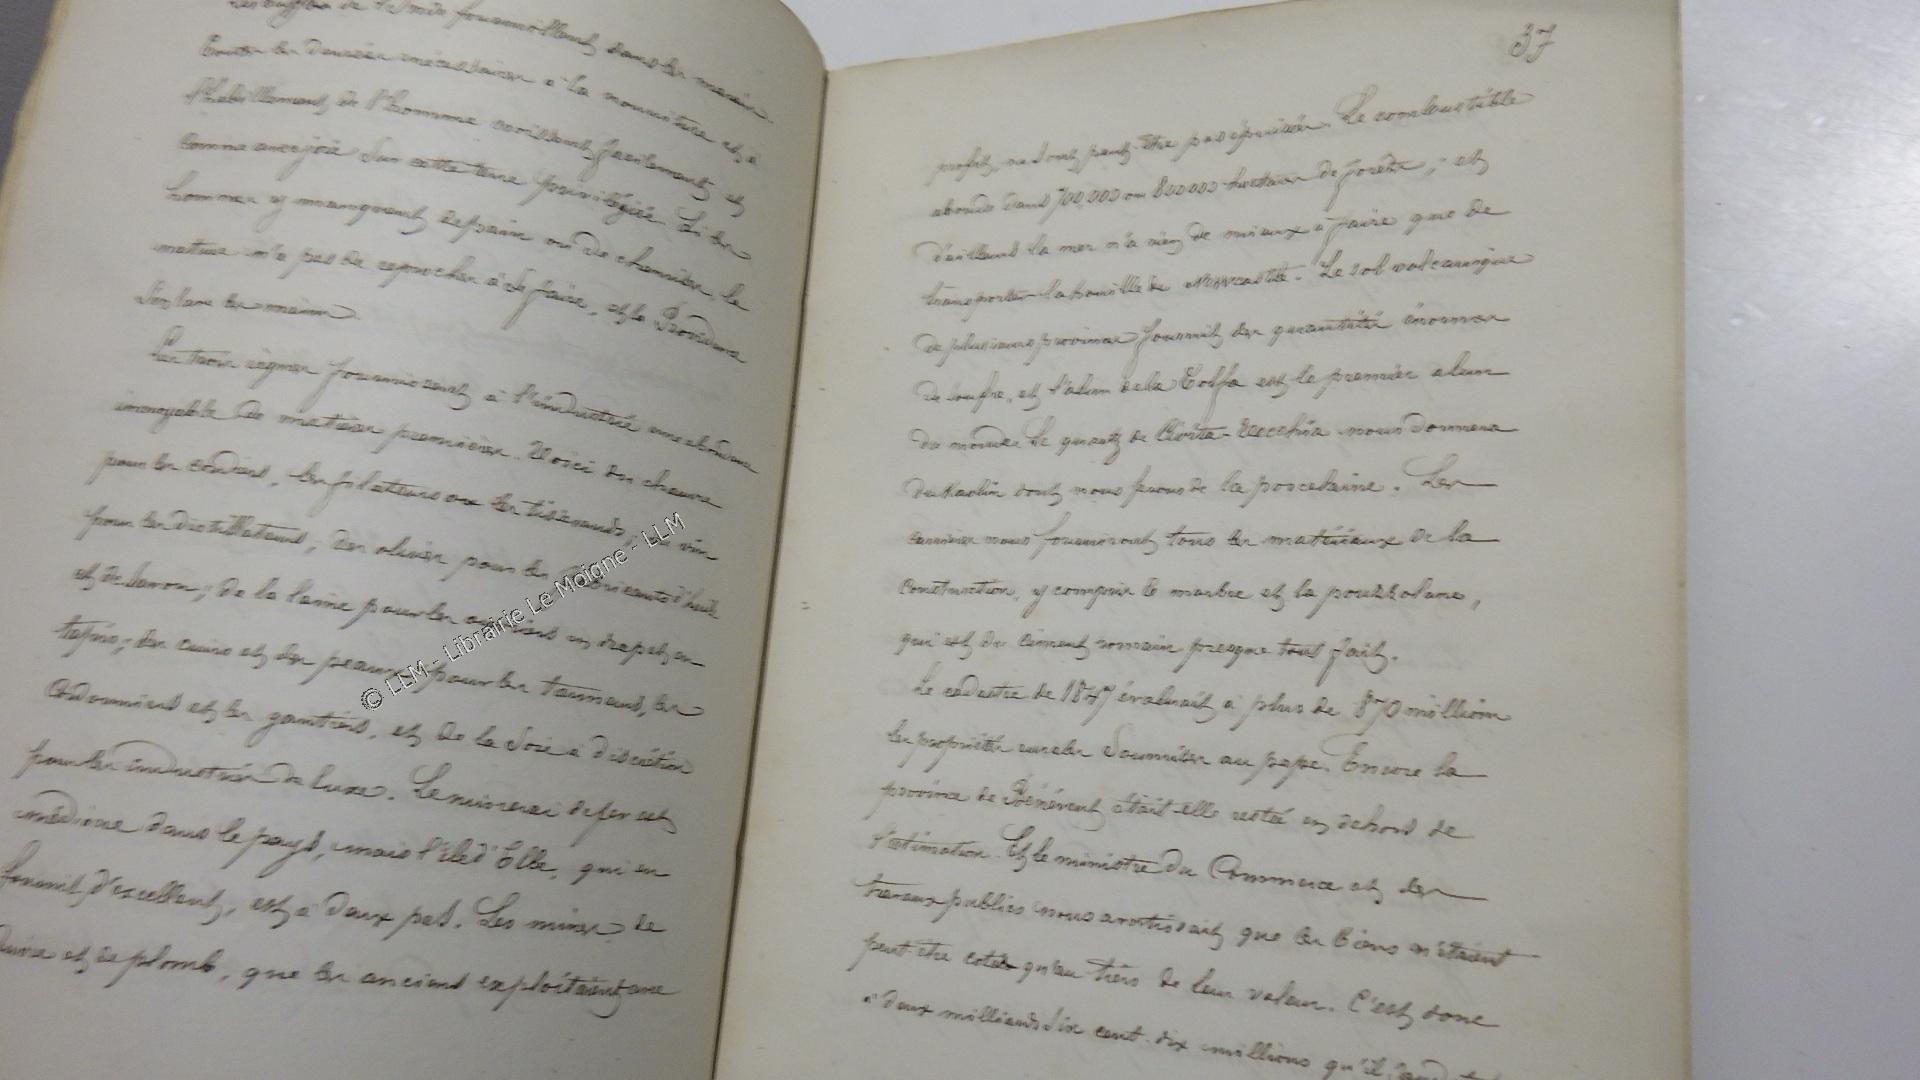 Les buffles de l'Asie fourmillent dans les marais.
Toutes les denrées nécessaires à la nourriture et à
l'habillement de l'homme croissent facilement et
comme avec joie sur cette terre privilégiée. Si les
hommes y manquent de pain ou de chemises, la
nature n'a pas de reproches à se faire, et la Providence
s'en lave les mains.
Les trois règnes fournissent à l'industrie une abondance
incroyable de matières premières. Voici du chanvre
pour les cordiers, les filateurs ou les tisserands; du vin
pour les distillateurs; des olives pour les fabricants d'huile
et de savon; de la laine pour les ouvriers en drap et en
tapis; des cuirs et des peaux pour les tanneurs, les
cordonniers et les gantiers, et de la soie à discrétion
pour les industries de luxe. Le minerai de fer est
médiocre dans le pays, mais l'île d'Elbe, qui en
fournit d'excellent, est à deux pas. Les mines de
cuivre et de plomb, que les anciens exploitaient avec
© LLM - Librairie Le Moigne - LLM
37
profit, ne sont peut-être pas épuisées. Le combustible
abonde dans 700,000 ou 800,000 hectares de forêts; et
d'ailleurs la mer n'a rien de mieux à faire que de
transporter la houille de Newcastle. Le sol volcanique
de plusieurs provinces fournit des quantités énormes
de soufre, et l'alun de la Tolfa est le premier alun
du monde. Le quartz de Civita-Vecchia nous donnera
du kaolin dont nous ferons de la porcelaine. Les
carrières nous fourniront tous les matériaux de la
construction, y compris le marbre et la pouzzolane,
qui est du ciment romain presque tout fait.
Le cadastre de 1847 évaluait à plus de 870 millions
les propriétés rurales soumises au pape. Encore la
province de Bénévent était-elle restée en dehors de
l'estimation. Et le ministre du Commerce et des
travaux publics nous avertissait que les biens n'étaient
peut-être cotés qu'au tiers de leur valeur. C'est donc
à deux milliards six cent dix millions qu'il